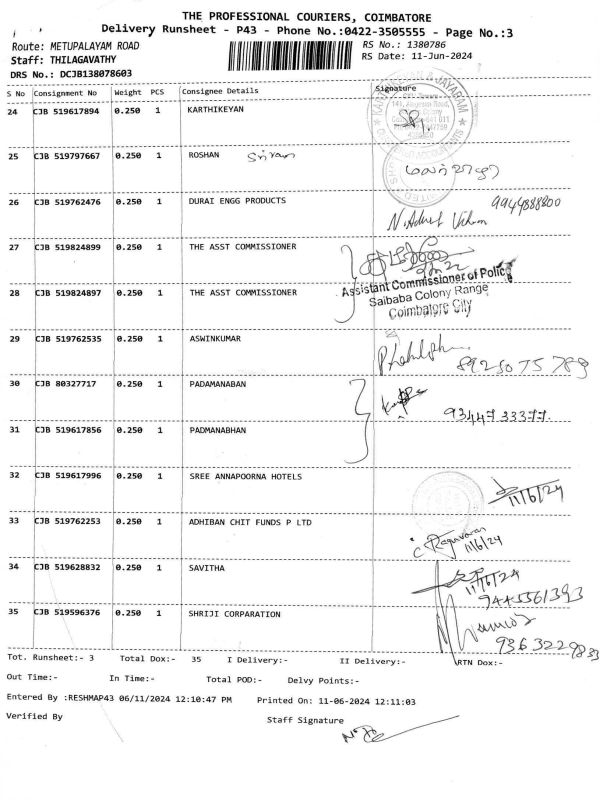 THE PROFESSIONAL COURIERS, COIMBATORE
Delivery Runsheet - P43 - Phone No.:0422-3505555 - Page No.:3
Route: METUPALAYAM ROAD
RS No.: 1380786
Staff: THILAGAVATHY
RS Date: 11-Jun-2024
DRS No.: DCJB138078603
S No Consignment No Weight PCS Consignee Details Signature
24 CJB 519617894 0.250 1 KARTHIKEYAN
25 CJB 519797667 0.250 1 ROSHAN
26 CJB 519762476 0.250 1 DURAI ENGG PRODUCTS 9944888800
27 CJB 519824899 0.250 1 THE ASST COMMISSIONER
Assistant Commissioner of Police
28 CJB 519824897 0.250 1 THE ASST COMMISSIONER Saibaba Colony Range
Coimbatore City
29 CJB 519762535 0.250 1 ASWINKUMAR
89250 75 789
30 CJB 80327717 0.250 1 PADAMANABAN
93447 33377.
31 CJB 519617856 0.250 1 PADMANABHAN
32 CJB 519617996 0.250 1 SREE ANNAPOORNA HOTELS
11/6/24
33 CJB 519762253 0.250 1 ADHIBAN CHIT FUNDS P LTD
C Raguvaran
11/6/24
34 CJB 519628832 0.250 1 SAVITHA
11/6/24
9445561393
35 CJB 519596376 0.250 1 SHRIJI CORPARATION
9363229833
Tot. Runsheet:- 3 Total Dox:- 35 I Delivery:- II Delivery:- RTN Dox:-
Out Time:- In Time:- Total POD:- Delvy Points:-
Entered By :RESHMAP43 06/11/2024 12:10:47 PM Printed On: 11-06-2024 12:11:03
Verified By Staff Signature